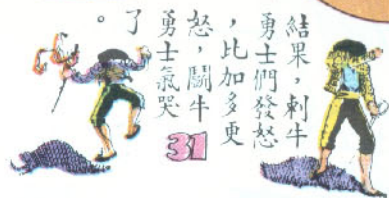 結果，刺牛
勇士們發怒
，比加多更
怒，鬭牛
勇士氣哭
了
。
31